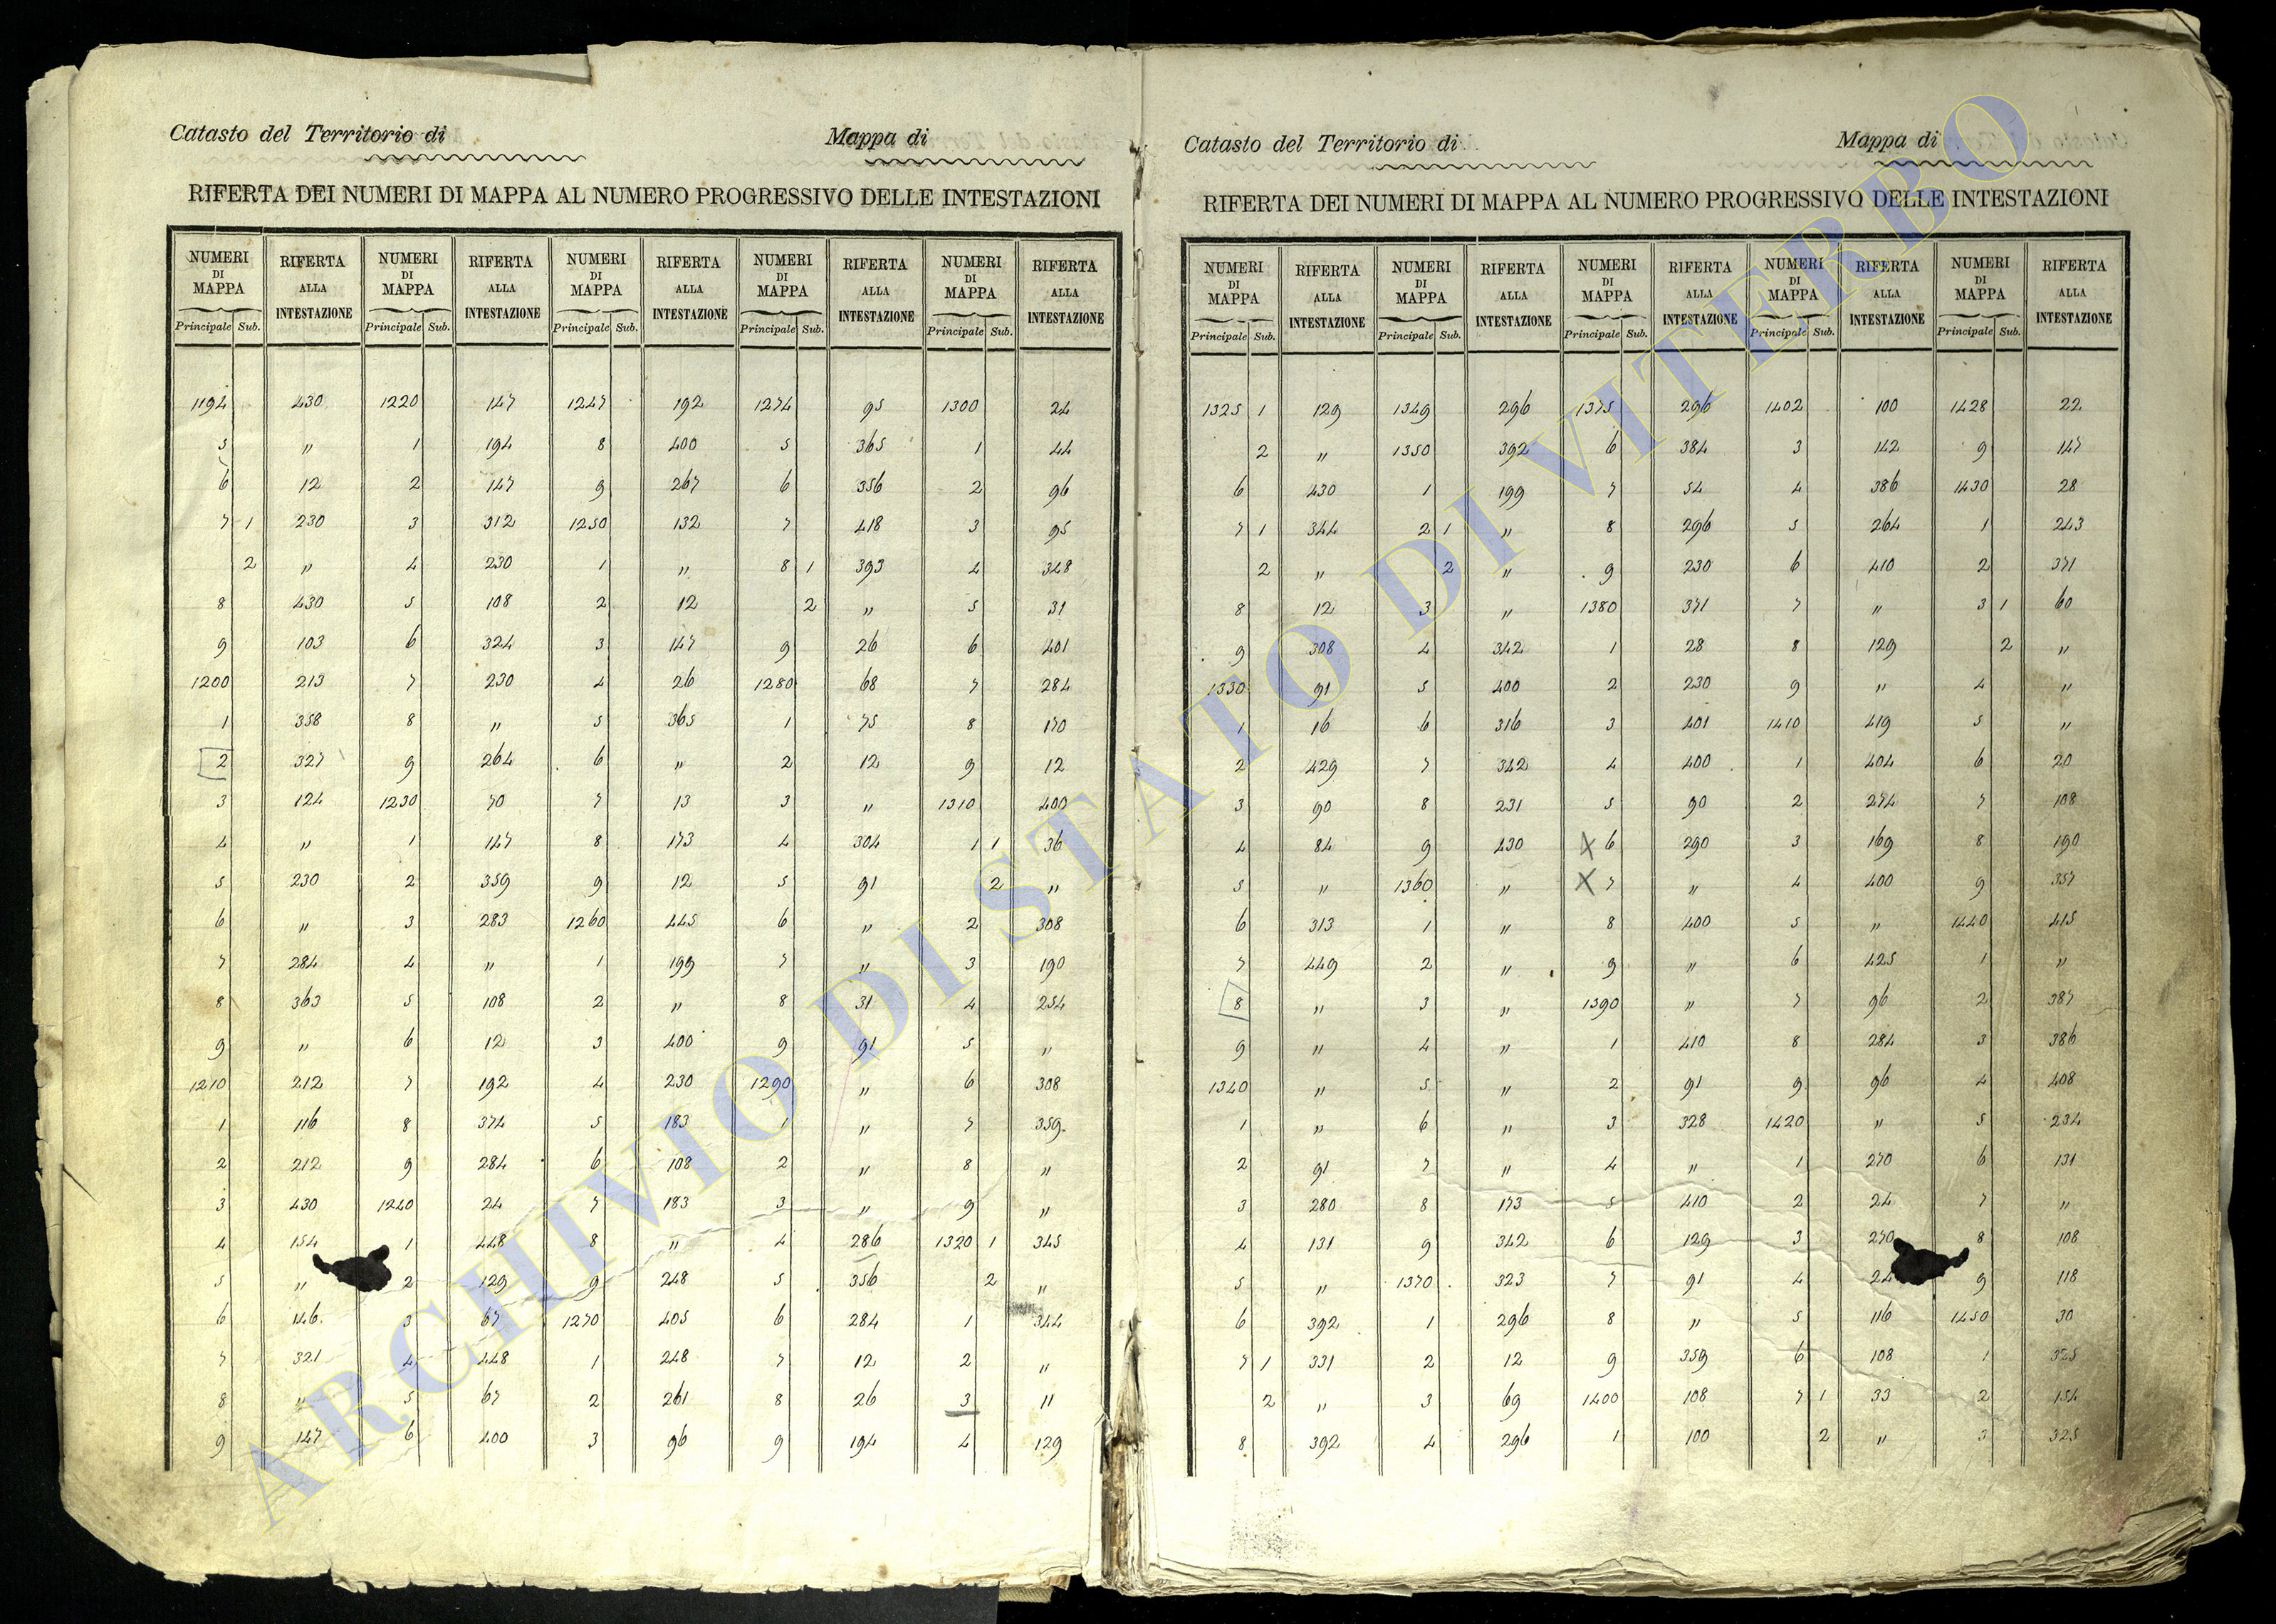 Catasto del Territorio di Mappa di
RIFERTA DEI NUMERI DI MAPPA AL NUMERO PROGRESSIVO DELLE INTESTAZIONI
NUMERI DI MAPPA RIFERTA ALLA INTESTAZIONE NUMERI DI MAPPA RIFERTA ALLA INTESTAZIONE NUMERI DI MAPPA RIFERTA ALLA INTESTAZIONE NUMERI DI MAPPA RIFERTA ALLA INTESTAZIONE NUMERI DI MAPPA RIFERTA ALLA INTESTAZIONE
Principale Sub. Principale Sub. Principale Sub. Principale Sub. Principale Sub.
1194 430 1220 147 1247 192 1274 95 1300 24
5 " 1 194 8 400 5 365 1 44
6 12 2 147 9 267 6 356 2 96
7 1 230 3 312 1250 132 7 418 3 95
2 " 4 230 1 " 8 1 393 4 348
8 430 5 108 2 12 2 " 5 31
9 103 6 324 3 147 9 26 6 401
1200 213 7 230 4 26 1280 68 7 284
1 358 8 " 5 365 1 75 8 170
2 327 9 264 6 " 2 12 9 12
3 124 1230 70 7 13 3 " 1310 400
4 " 1 147 8 173 4 304 1 1 36
5 230 2 359 9 12 5 91 2 "
6 " 3 283 1260 445 6 " 2 308
7 284 4 " 1 199 7 " 3 190
8 363 5 108 2 " 8 31 4 254
9 " 6 12 3 400 9 91 5 "
1210 212 7 192 4 230 1290 " 6 308
1 116 8 374 5 183 1 " 7 359
2 212 9 284 6 108 2 " 8 "
3 430 1240 24 7 183 3 " 9 "
4 154 1 448 8 " 4 286 1320 1 345
5 " 2 129 9 248 5 356 2 "
6 146 3 67 1270 405 6 284 1 344
7 321 4 448 1 248 7 12 2 "
8 " 5 67 2 261 8 26 3 "
9 147 6 400 3 96 9 194 4 129
Catasto del Territorio di Mappa di
RIFERTA DEI NUMERI DI MAPPA AL NUMERO PROGRESSIVO DELLE INTESTAZIONI
NUMERI DI MAPPA RIFERTA ALLA INTESTAZIONE NUMERI DI MAPPA RIFERTA ALLA INTESTAZIONE NUMERI DI MAPPA RIFERTA ALLA INTESTAZIONE NUMERI DI MAPPA RIFERTA ALLA INTESTAZIONE NUMERI DI MAPPA RIFERTA ALLA INTESTAZIONE
Principale Sub. Principale Sub. Principale Sub. Principale Sub. Principale Sub.
1325 1 129 1349 296 1375 296 1402 100 1428 22
2 " 1350 392 6 384 3 142 9 147
6 430 1 199 7 54 4 386 1430 28
7 1 344 2 1 " 8 296 5 264 1 243
2 " 2 " 9 230 6 410 2 371
8 12 3 " 1380 371 7 " 3 1 60
9 308 4 342 1 28 8 129 2 "
1330 91 5 400 2 230 9 " 4 "
1 16 6 316 3 401 1410 419 5 "
2 429 7 342 4 400 1 404 6 20
3 90 8 231 5 90 2 274 7 108
4 84 9 430 X 6 290 3 169 8 190
5 " 1360 " X 7 " 4 400 9 357
6 313 1 " 8 400 5 " 1440 415
7 449 2 " 9 " 6 425 1 "
8 " 3 " 1390 " 7 96 2 387
9 " 4 " 1 410 8 284 3 386
1340 " 5 " 2 91 9 96 4 408
1 " 6 " 3 328 1420 " 5 234
2 91 7 " 4 " 1 270 6 131
3 280 8 173 5 410 2 24 7 "
4 131 9 342 6 129 3 270 8 108
5 " 1370 323 7 91 4 24 9 118
6 392 1 296 8 " 5 116 1450 30
7 1 331 2 12 9 359 6 108 1 325
2 " 3 69 1400 108 7 1 33 2 154
8 392 4 296 1 100 2 " 3 325
ARCHIVIO DI STATO DI VITERBO